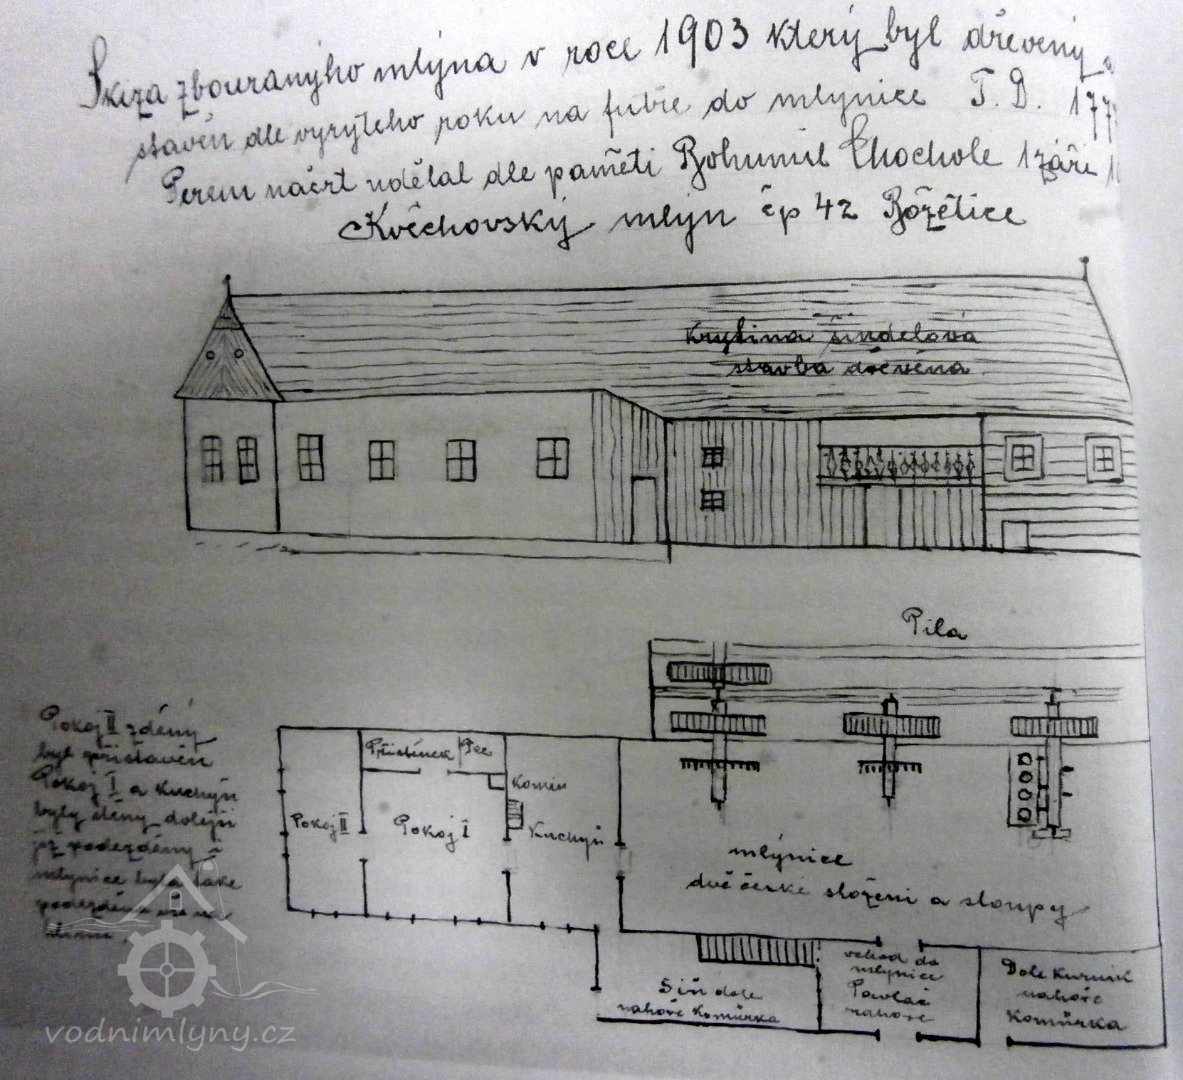 Skiza zbouranýho mlýna v roce 1903 který byl dřevený
stavěn dle vyrytého roku na futře do mlýnice T. D. 177
Perem náčrt udělal dle paměti Bohumil Chochole 1 září 1
Kvěchovský mlýn čp 42 Božetice
Krytina šindelová
stavba dřevěná
Pila
Pokoj II zděný
byl přistavěn
Pokoj I a kuchyň
byly
podezděny
mlýnice byla také
Přístinek Pec
Komín
Pokoj II
Pokoj I
Kuchyň
mlýnice
dvě české složení a stoupy
vchod do
mlýnice
Pavlač
nahoře
Síň dole
nahoře Komůrka
Dole Kurnik
nahoře
Komůrka
vodnimlyny.cz